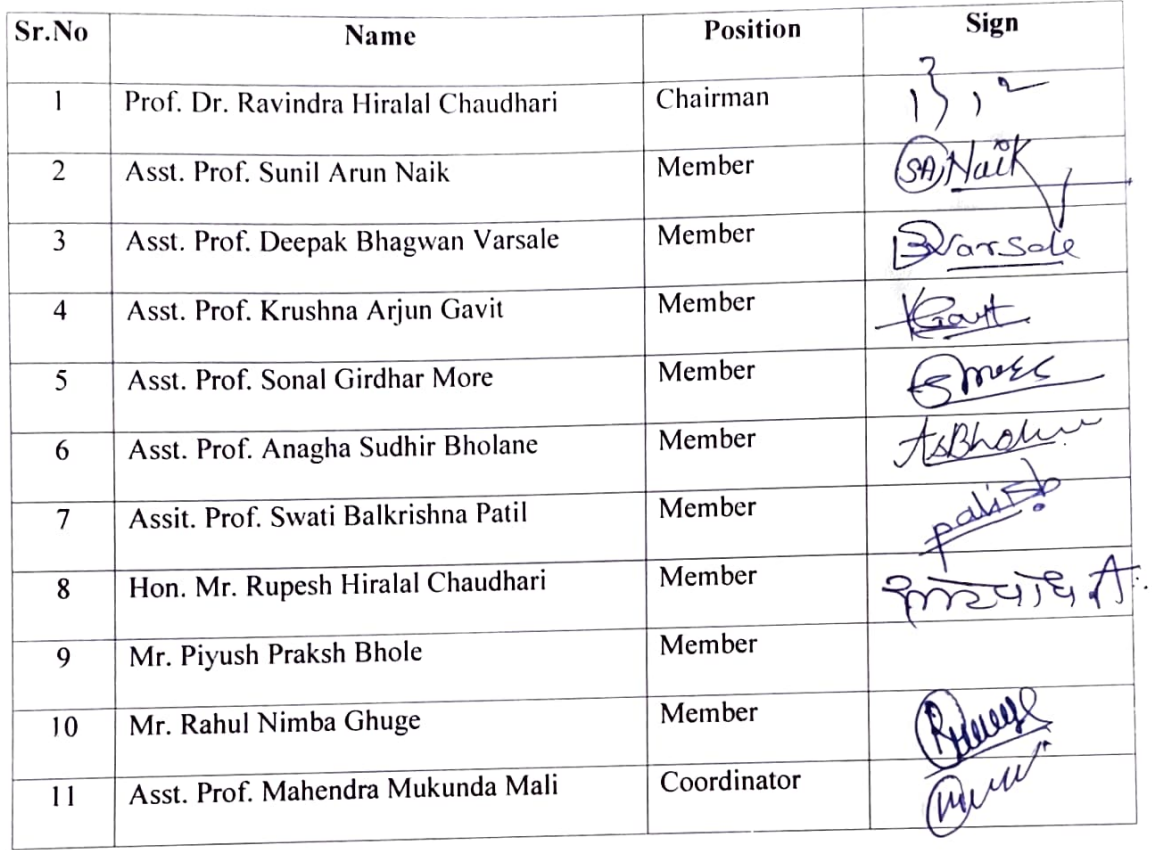 Sr.No Name Position Sign
1 Prof. Dr. Ravindra Hiralal Chaudhari Chairman
2 Asst. Prof. Sunil Arun Naik Member SA,Naik
3 Asst. Prof. Deepak Bhagwan Varsale Member BVarsale
4 Asst. Prof. Krushna Arjun Gavit Member KGavit
5 Asst. Prof. Sonal Girdhar More Member
6 Asst. Prof. Anagha Sudhir Bholane Member
7 Assit. Prof. Swati Balkrishna Patil Member
8 Hon. Mr. Rupesh Hiralal Chaudhari Member
9 Mr. Piyush Praksh Bhole Member
10 Mr. Rahul Nimba Ghuge Member
11 Asst. Prof. Mahendra Mukunda Mali Coordinator